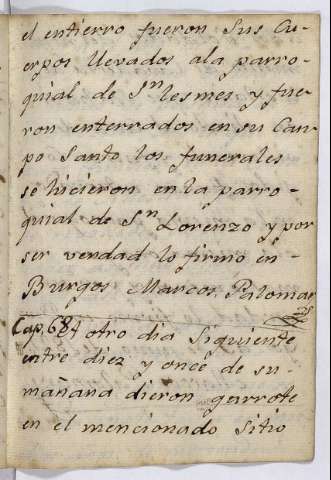 el entierro fueron sus Cu-
erpos llevados ala parro-
quial de Sn lesmes y fue-
ron enterrados en su Cam-
po Santo los funerales
se hicieron en la parro-
quial de Sn Lorenzo y por
ser verdad lo firmo en
Burgos Marcos Palomar
Cap. 684 otro dia Siguiente
entre diez y once de su
mañana dieron garrote
en el mencionado Sitio